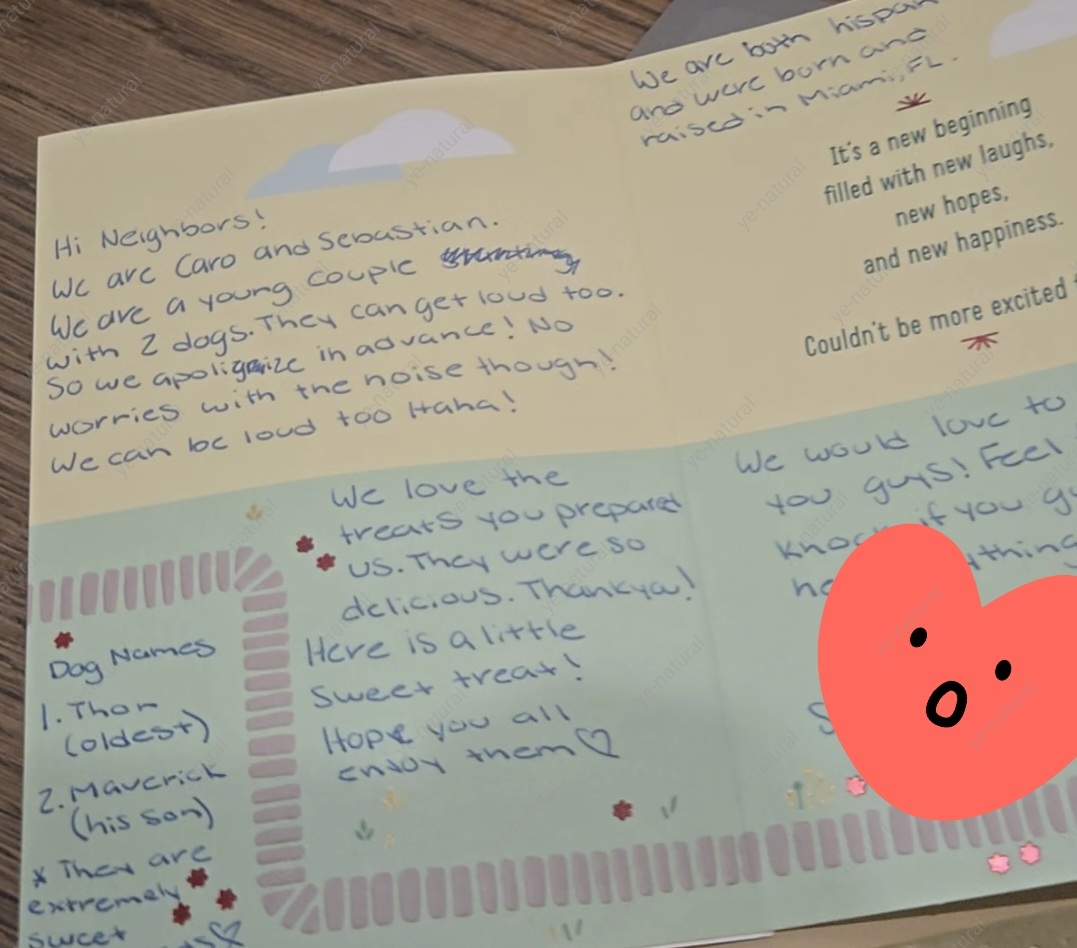 Hi Neighbors!
We are Caro and Sebastian.
We are a young couple
with 2 dogs. They can get loud too.
So we apoligize in advance! No
worries with the noise though!
We can be loud too Haha!
We love the
treats you prepared
us. They were so
delicious. Thankya!
Here is a little
sweet treat!
Hope you all
enjoy them♡
Dog Names
1. Thor
(oldest)
2. Maverick
(his son)
* They are
extremely
sweet
We are both hispan
and were born and
raised in Miami, FL.
It's a new beginning
filled with new laughs,
new hopes,
and new happiness.
Couldn't be more excited
We would love to
you guys! Feel
if you
ye-natural